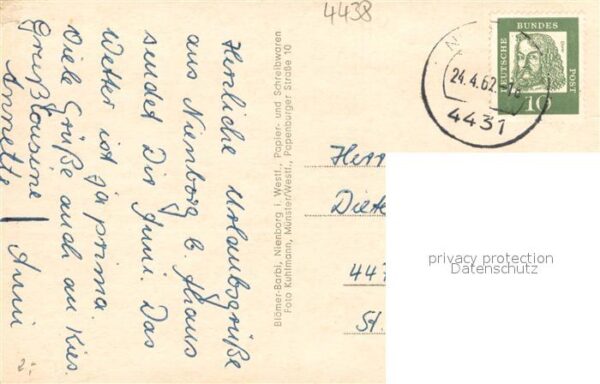 4438
Herzliche Urlaubsgrüße
aus Nienborg b. Ahaus
sendet Dir Anni. Das
Wetter ist ja prima.
Viele Grüße auch an
Annette Anni
2,-
Blömer-Barbi, Nienborg i. Westf., Papier- und Schreibwaren
Foto Kuhlmann, Münster/Westf., Papenburger Straße 10
24.4.62
4431
DEUTSCHE
BUNDES
POST
10
Herr
Diete
447
St.
privacy protection
Datenschutz